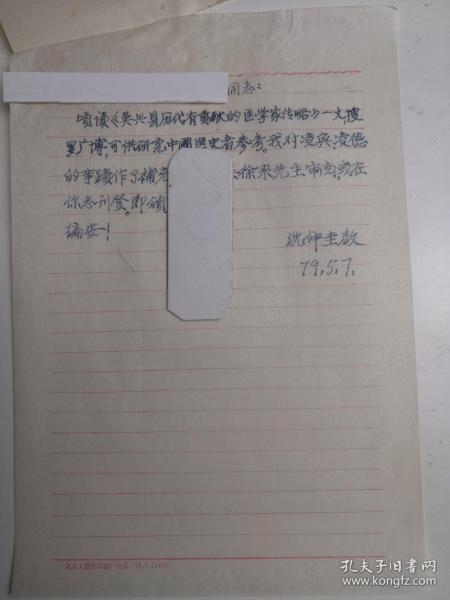 同志：
顷读《吴兴县历代有贡献的医学家传略》一文搜
罗广博，可供研究中国医史者参考。我对凌奂、凌德
的事迹作了补充 徐来先生审定，或在
你志刊登。即颂
编安！
沈仲圭启
79.5.7.
孔夫子旧书网
www.kongfz.com